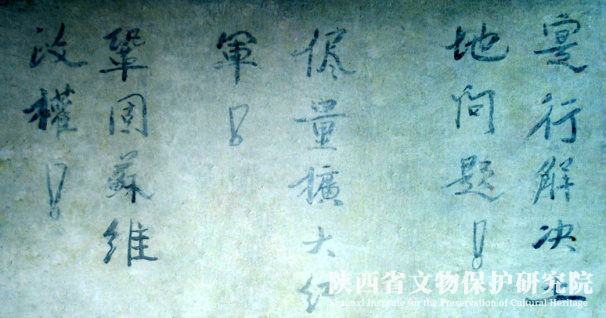 寔行解决土
地问题！
侭量擴大红
軍！
鞏固蘇維
政權！
陕西省文物保护研究院
Shaanxi Institute for the Preservation of Cultural Heritage